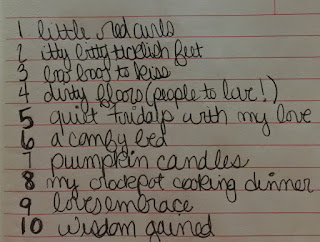 1 little red curls
2 itty bitty ticklish feet
3 boo boos to kiss
4 dirty floors (people to luv!)
5 quiet with my love
6 a comfy bed
7 pumpkin candles
8 my crockpot cooking dinner
9 loves embrace
10 wisdom gained